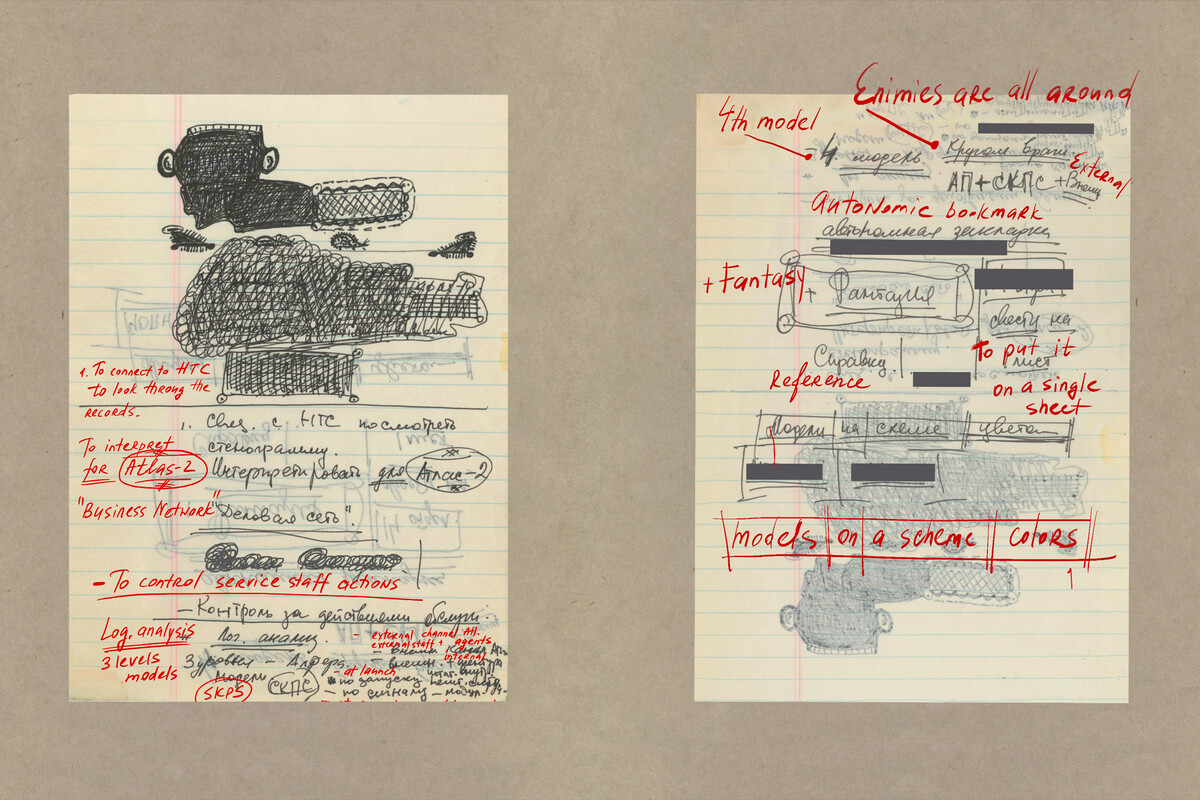 1. To connect to HTC
to look throug the
records.
1. Связ. с НТС посмотреть
стенограмму.
To interpret
for Atlas-2
Интерпретировать для Атлас-2
"Business Network"
"Деловая сеть".
- To control service staff actions
- Контроль за действиями обслуж.
Log. analysis
Лог. анализ.
3 levels
models
3 уровня - Алфера.
модели
SKPS
СКПС
- external channel All.
external staff + agents
internal
- at launch
- по запуску
- по сигналу -
Enimies are all around
4th model
4. модель
Кругом враги.
External
АП+СКПС+Внеш
Autonomic bookmark
автономная закладка
+ Fantasy
+ Фантазия
свести на
лист
To put it
on a single
sheet
Справку
Reference
Модели на схеме цветом
models on a scheme colors
1